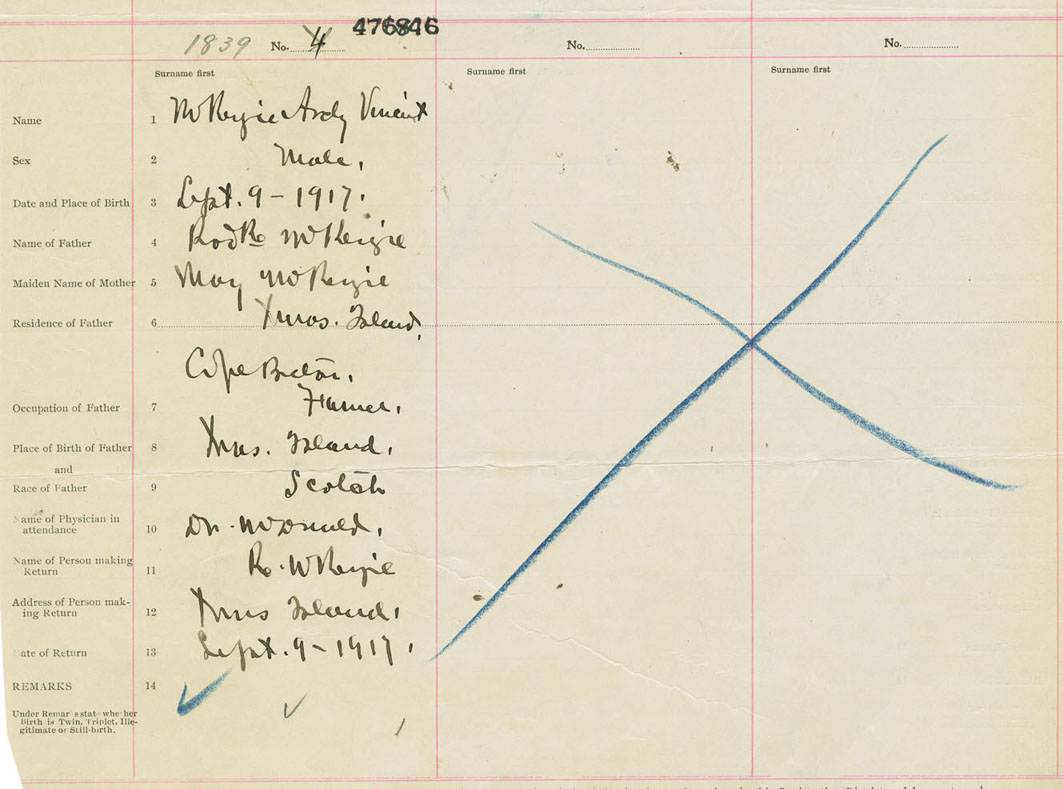 476846
1839 No. 4 No. No.
Surname first Surname first Surname first
Name 1 McKenzie Andy Vincent
Sex 2 Male,
Date and Place of Birth 3 Sept. 9 - 1917.
Name of Father 4 McKenzie
Maiden Name of Mother 5 May McKenzie
Residence of Father 6 Xmas. Island,
Cape Breton,
Occupation of Father 7 Farmer,
Place of Birth of Father 8 Xmas. Island,
and
Race of Father 9 Scotch
Name of Physician in
attendance 10 Dr. McDonald,
Name of Person making
Return 11 McKenzie
Address of Person mak-
ing Return 12 Xmas Island,
Date of Return 13 Sept. 9 - 1917,
REMARKS 14
Under Remarks state whether
Birth is Twin, Triplet, Ille-
gitimate or Still-birth.